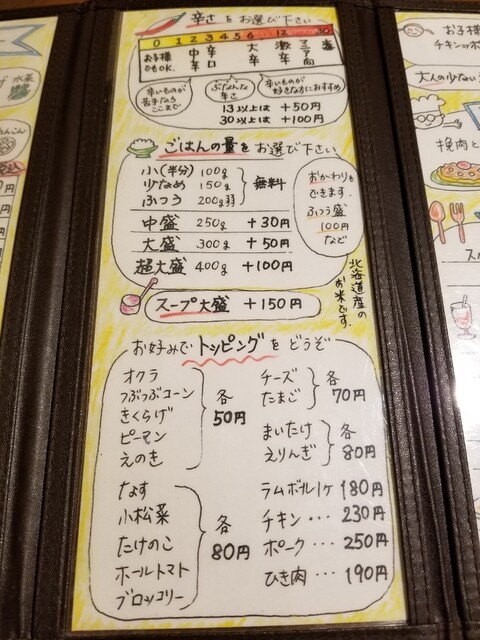 辛さをお選び下さい
0 1 2 3 4 5 6 … 12 … 30
お子様でもOK. 中辛 辛口 大辛 激辛 マニア向
辛いものが苦手ならここまで
ぶなんな辛さ
辛いものが好きな方におすすめ
13以上は +50円
30以上は +100円
ごはんの量をお選び下さい
小(半分) 100g
少なめ 150g
ふつう 200g弱
無料
中盛 250g +30円
大盛 300g +50円
超大盛 400g +100円
おかわりもできます.
ふつう盛
100円
など
北海道産のお米です.
スープ大盛 +150円
お好みでトッピングをどうぞ
オクラ
つぶつぶコーン
きくらげ
ピーマン
えのき
各50円
なす
小松菜
たけのこ
ホールトマト
ブロッコリー
各80円
チーズ
たまご
各70円
まいたけ
えりんぎ
各80円
ラムボール1ヶ 180円
チキン … 230円
ポーク … 250円
ひき肉 … 190円
水菜
お子様
チキンorポ
大人の少ない
挽肉と